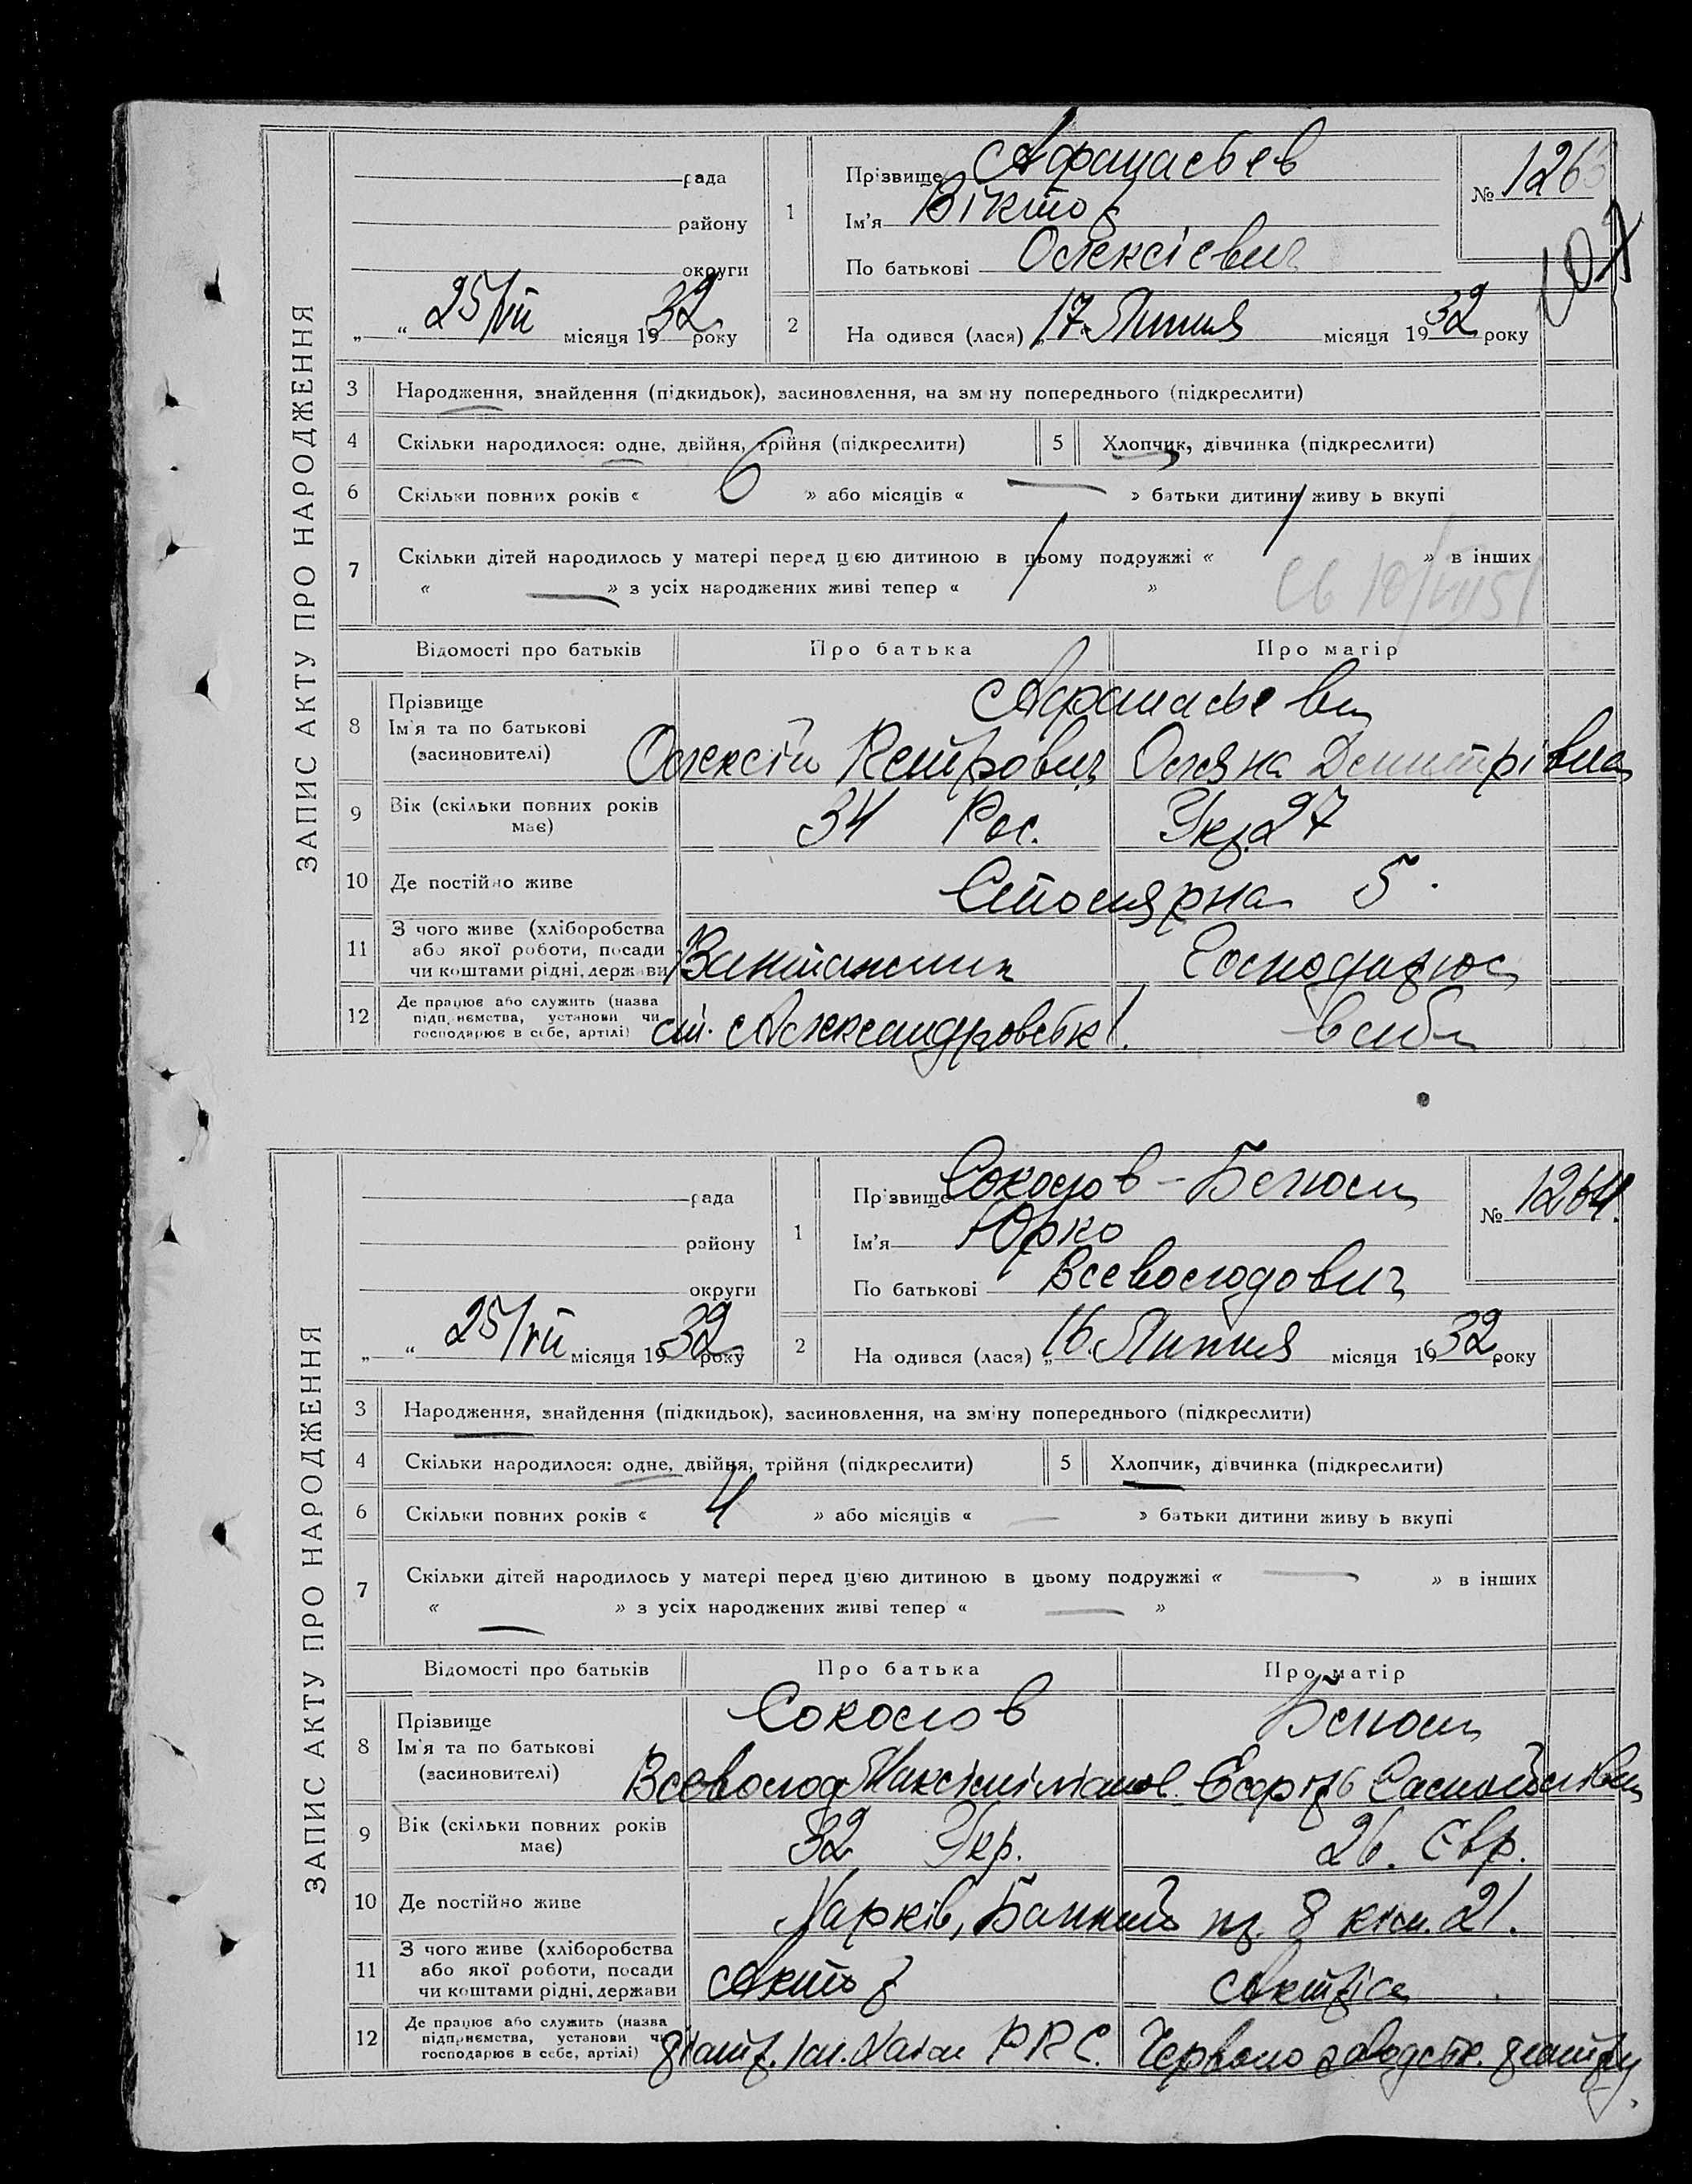 ЗАПИС АКТУ ПРО НАРОДЖЕННЯ
рада
району
округи
„ “ 25/VII місяця 1932 року
1
Прізвище Афанасьєв
Ім'я Віктор
По батькові Олексієвич
№ 126
107
2
На одився (лася) „17 Липня місяця 1932 року
3 Народження, знайдення (підкидьок), засиновлення, на зміну попереднього (підкреслити)
4 Скільки народилося: одне, двійня, трійня (підкреслити)
5 Хлопчик, дівчинка (підкреслити)
6 Скільки повних років « 6 » або місяців « — » батьки дитини живу ь вкупі
7 Скільки дітей народилось у матері перед цією дитиною в цьому подружжі « 1 » в інших
« — » з усіх народжених живі тепер « 1 »
Відомості про батьків Про батька Про матір
8 Прізвище
Ім'я та по батькові
(засиновителі)
Афанасьеви
Олексій Петрович Оляна Дмитрівна
9 Вік (скільки повних років
має)
34 Рос. Укр. 27
10 Де постійно живе Столярна 5.
11 З чого живе (хліборобства
або якої роботи, посади
чи коштами рідні, держави)
Вантажник Господарює
12 Де працює або служить (назва
підприємства, установи чи
господарює в себе, артілі)
ст. Александровськ. в себе
ЗАПИС АКТУ ПРО НАРОДЖЕННЯ
рада
району
округи
„ “ 25/VII місяця 1932 року
1
Прізвище Соколов-Белюси
Ім'я Юрко
По батькові Всеволодович
№ 1264.
2
На одився (лася) „16 Липня місяця 1932 року
3 Народження, знайдення (підкидьок), засиновлення, на зміну попереднього (підкреслити)
4 Скільки народилося: одне, двійня, трійня (підкреслити)
5 Хлопчик, дівчинка (підкреслити)
6 Скільки повних років « 4 » або місяців « — » батьки дитини живу ь вкупі
7 Скільки дітей народилось у матері перед цією дитиною в цьому подружжі « — » в інших
« — » з усіх народжених живі тепер « — »
Відомості про батьків Про батька Про матір
8 Прізвище
Ім'я та по батькові
(засиновителі)
Соколов
Всеволод Максіміліанов.
9 Вік (скільки повних років
має)
32 Укр. 26. Євр.
10 Де постійно живе Харків, Банний пр. 8 кім. 21.
11 З чого живе (хліборобства
або якої роботи, посади
чи коштами рідні, держави)
Актор Актріса
12 Де працює або служить (назва
підприємства, установи чи
господарює в себе, артілі)
Р Р С. Червоно заводськ. театру